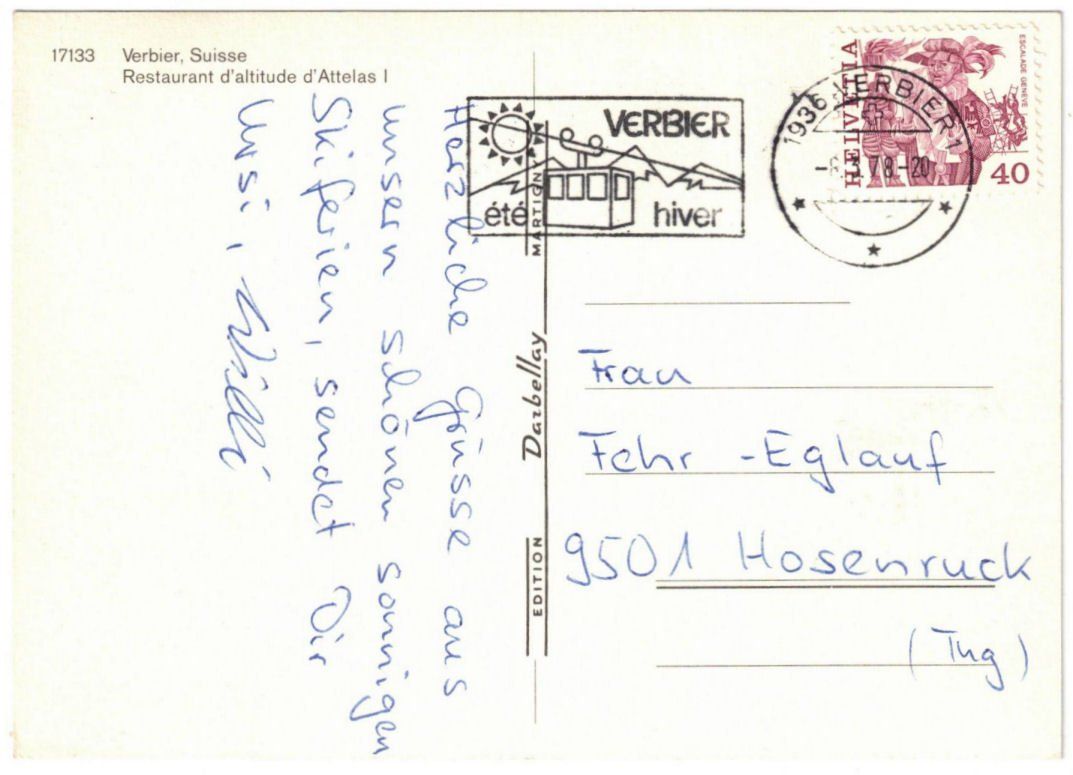 17133 Verbier, Suisse
Restaurant d'altitude d'Attelas I
Herzliche Grüsse aus
unsern schönen sonnigen
Skiferien, sendet Dir
Ursi, Willi
EDITION Darbellay MARTIGNY
VERBIER
été hiver
1936 VERBIER 1
-6.3.78-20
HELVETIA
ESCALADE GENÈVE
40
Frau
Fehr - Eglauf
9501 Hosenruck
(Thg)